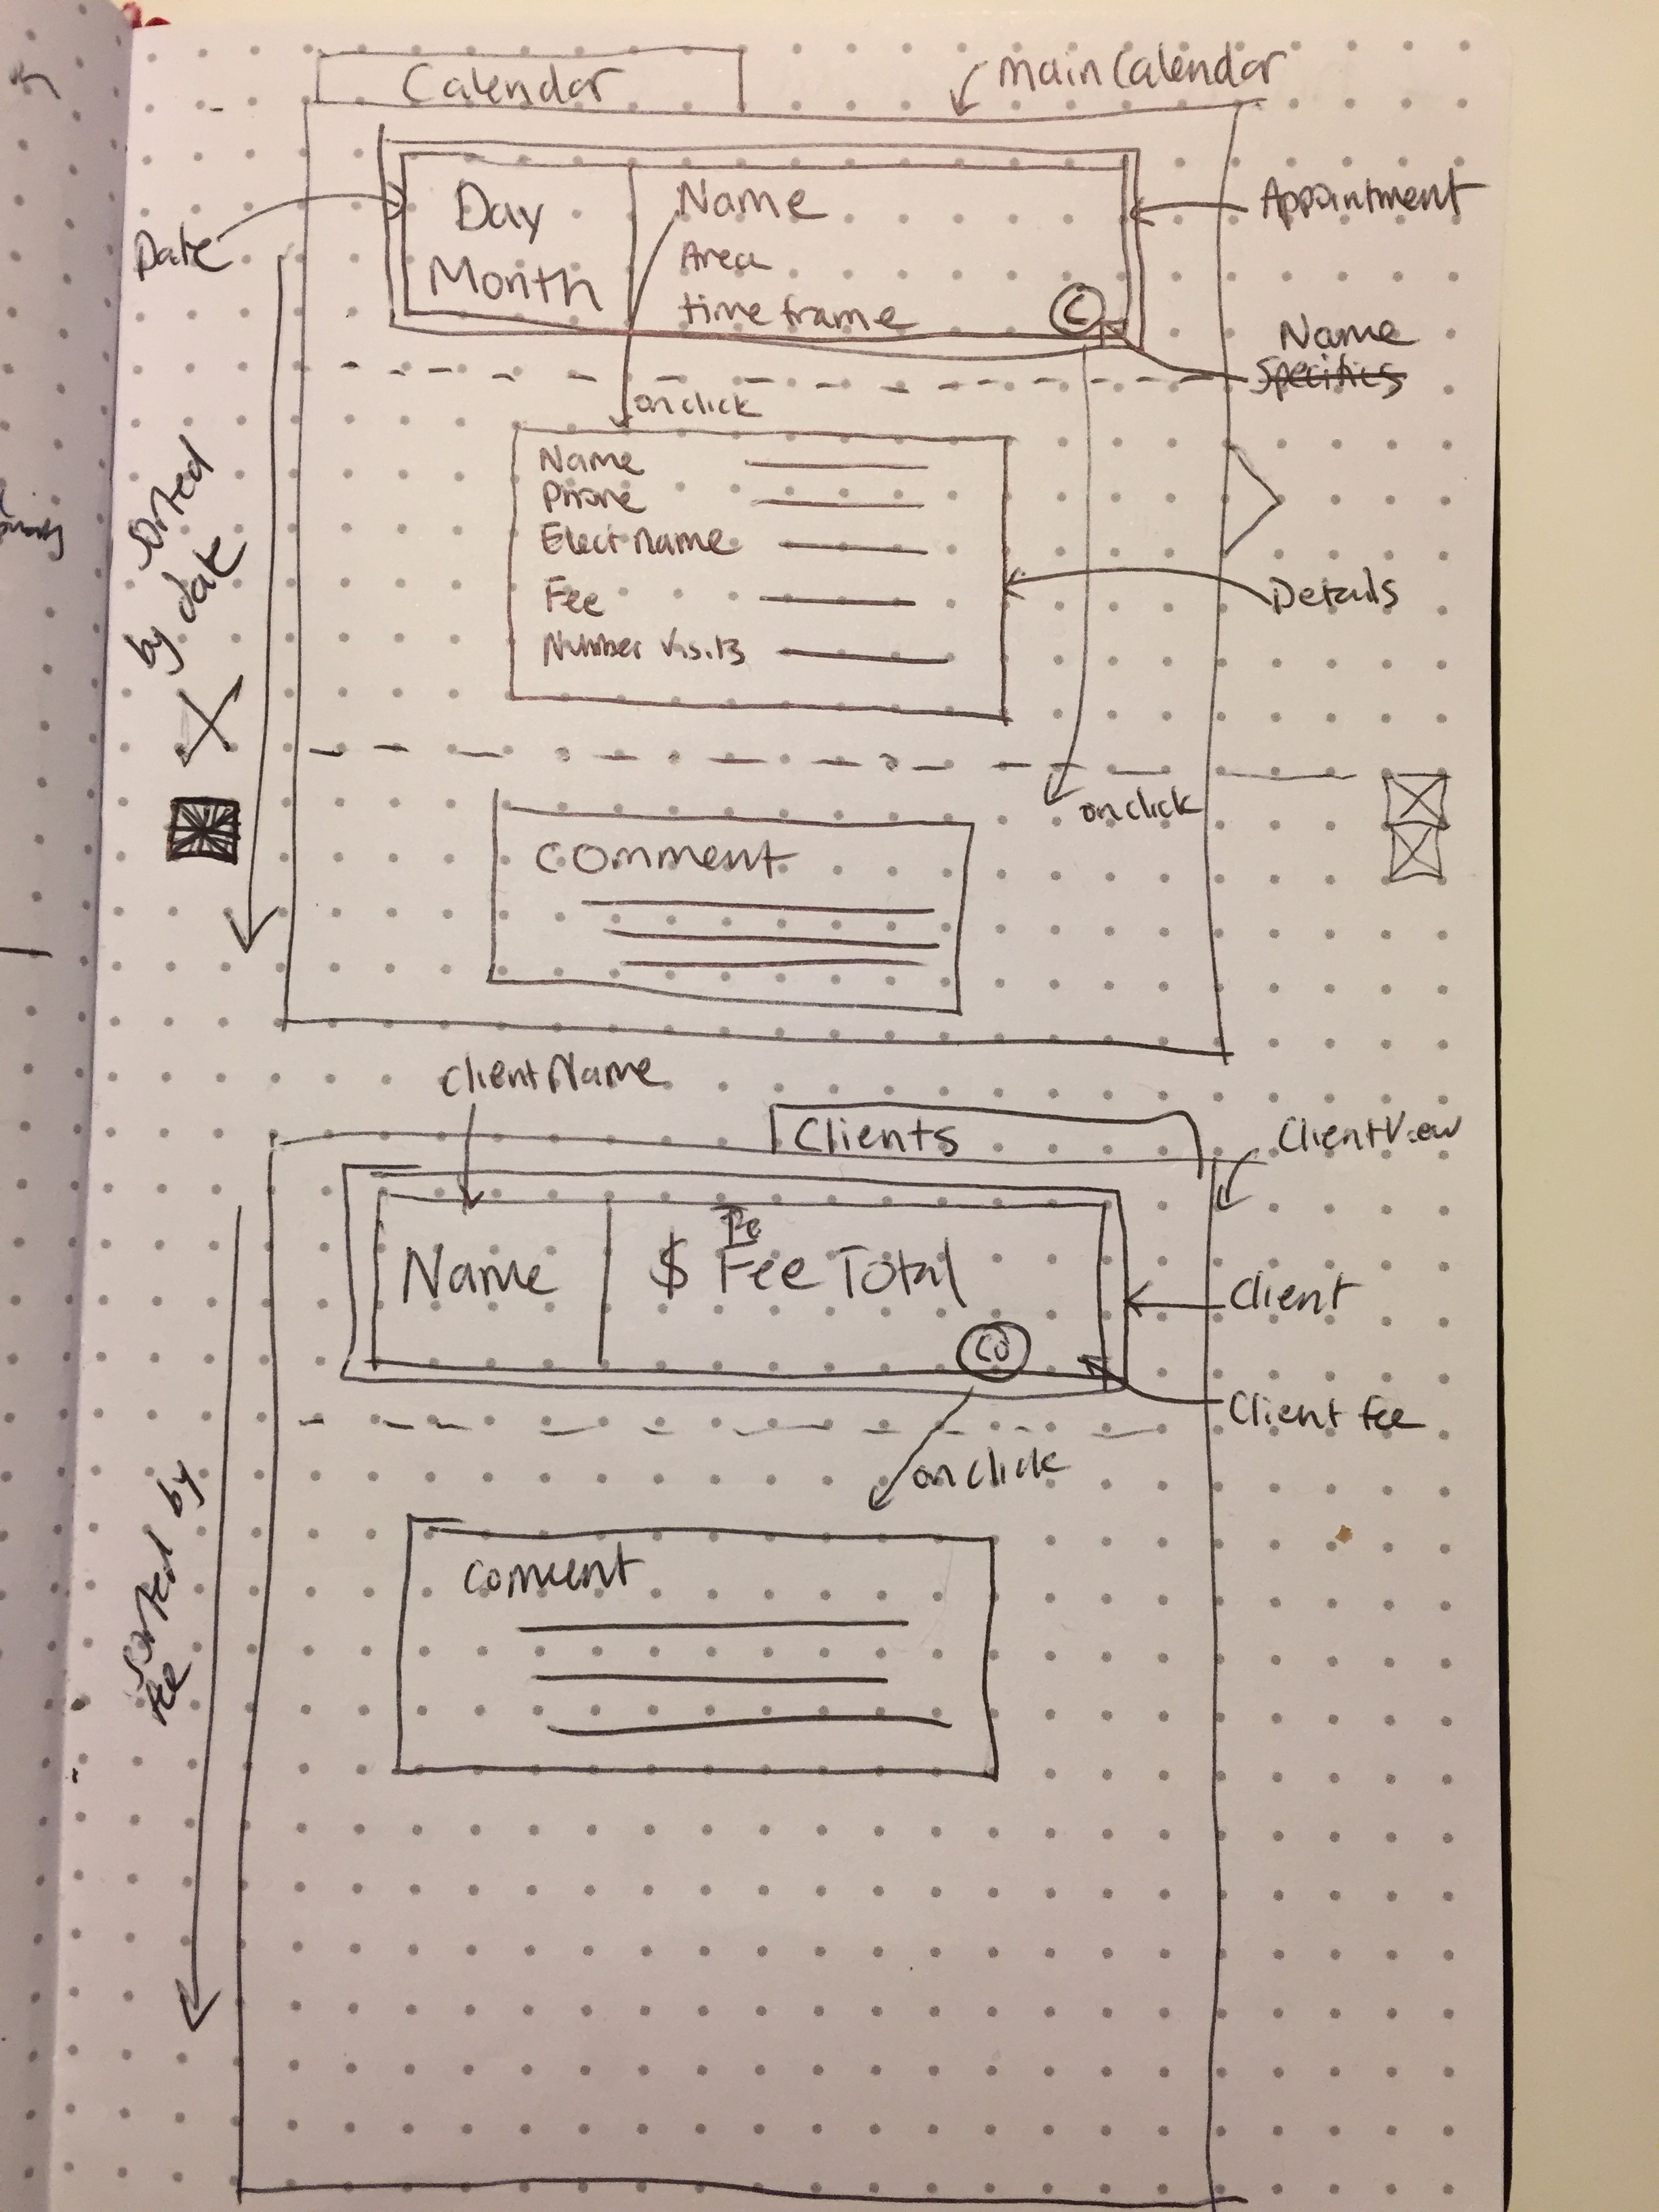 Calendar
mainCalendar
Day
Month
Name
Area
timeframe
C
Date
Appointment
Name
Specifics
onclick
Name
Phone
Elect name
Fee
Number visits
Details
sorted
by date
onclick
comment
clientName
Clients
ClientView
Name
$ Fee Total
Co
Client
Client fee
onclick
sorted by
fee
comment